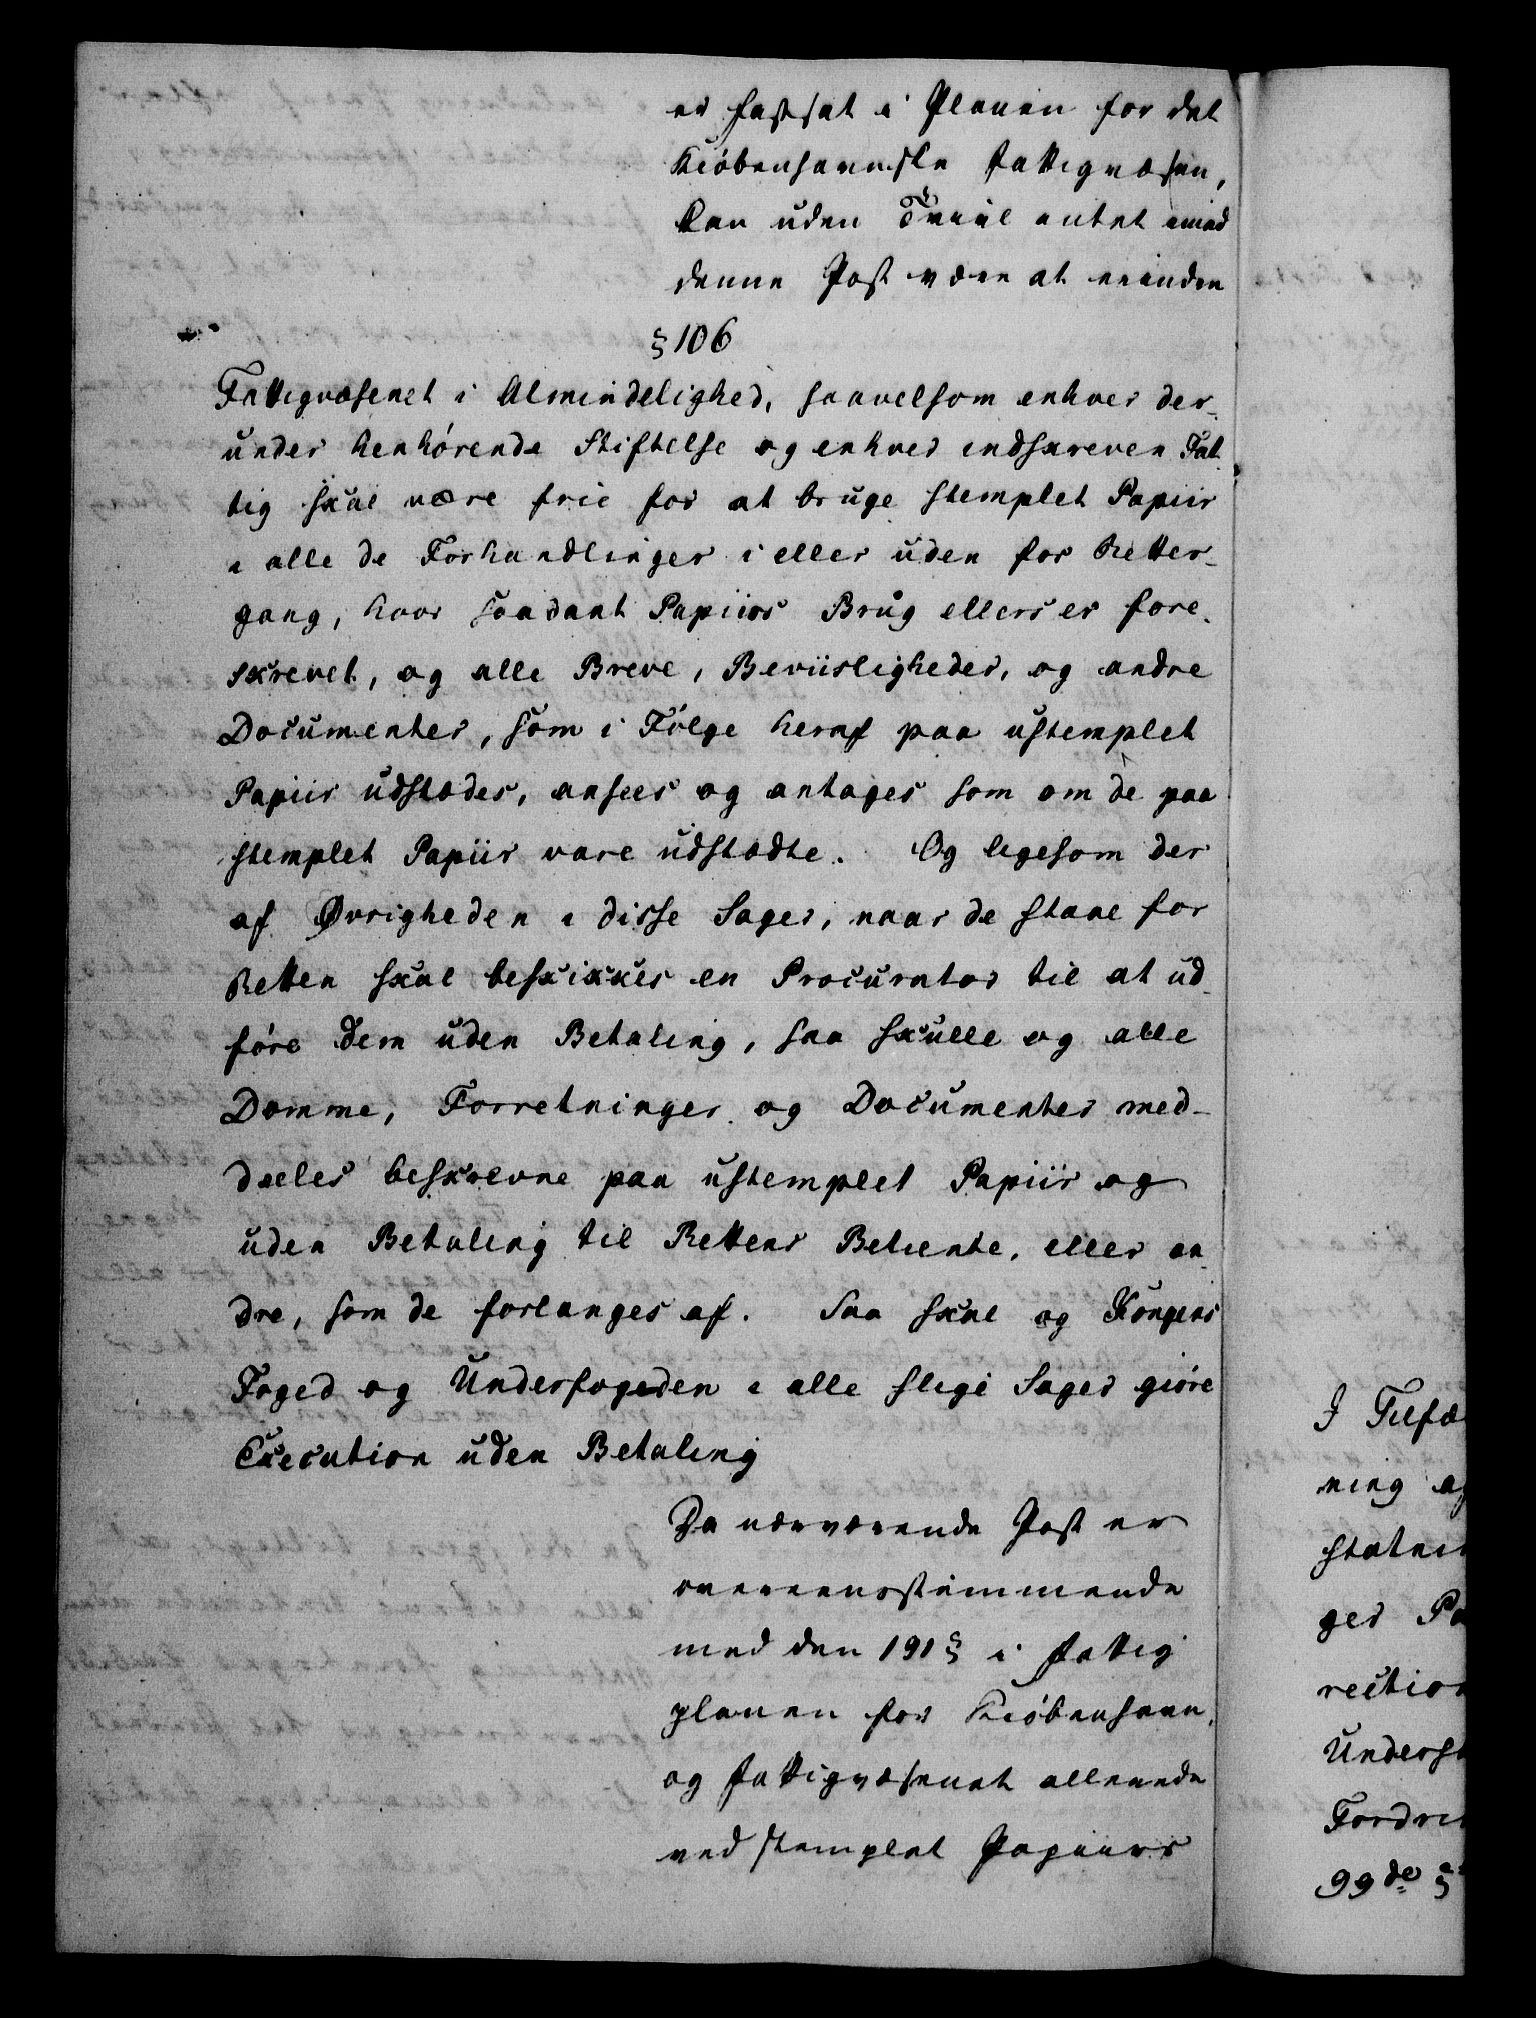 er fastsat i Planen for det
Kiøbenhavnske Fattigvæsen,
kan uden Tviil intet imod
denne Post være at erindre
§ 106
Fattigvæsenet i Almindelighed, saavelsom enhver der-
under henhørende Stiftelse og enhver indskreven Fat
tig skal være frie for at bruge stemplet Papiir
i alle de Forhandlinger i eller uden for Retter-
gang, hvor saadant Papiirs Brug ellers er fore-
skrevet, og alle Breve, Beviisligheder, og andre
Documenter, som i Følge heraf paa ustemplet
Papiir udstædes, ansees og antages som om de paa
stemplet Papiir vare udstædte. Og ligesom der
af Øvrigheden i disse Sager, naar de staae for
Retten skal beskikkes en Procurator til at ud
føre dem uden Betaling, saa skulle og alle
Domme, Forretninger og Documenter med-
deeles beskrevne paa ustemplet Papiir og
uden Betaling til Rettens Betiente, eller an
dre, som de forlanges af. Saa skal og Kongens
Foged og Underfogeden i alle slige Sager giøre
Execution uden Betaling
Da nærværende Post er
overeensstemmende
med den 191 § i Fattig
planen for Kiøbenhavn,
og Fattigvæsenet allerede
ved stemplet Papiirs
I Tilfæ
ning a
statni
ger Pa
rection
Underst
Fordri
99de §